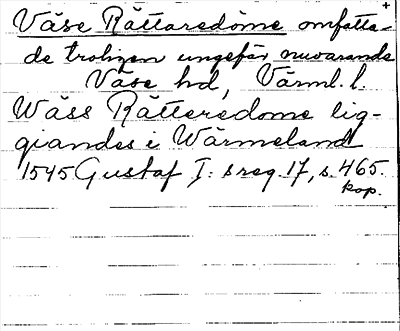 Väse Rättaredöme omfatta-
de troligen ungefär nuvarande
Väse hd, Värml. l.
Wäss Rätteredome lig-
giandes i Wärmeland
1545 Gustaf I: s reg. 17, s. 465.
kop.